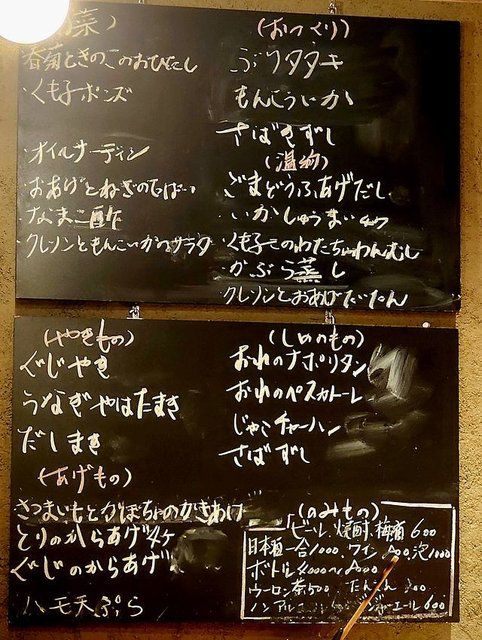 菜)
春菊ときのこのおひたし
・くも子ポンズ
・オイルサーディン
・おあげとねぎのてっぱい
・なまこ酢
・クレソンともんこいかのサラダ
(おつくり)
ぶりタタキ
もんこういか
さばきずし
(温物)
ごまどうふあげだし
・いかしゅうまい
・くも子このわたちゃわんむし
・かぶら蒸し
・クレソンとおあげ
(やきもの)
ぐじやき
うなぎやはたまき
だしまき
(あげもの)
さつまいもとかぼちゃのかきあげ
とりのからあげ4ケ
ぐじのからあげ
ハモ天ぷら
(しめのもの)
おれのナポリタン
おれのペスカトーレ
じゃこチャーハン
さばずし
(のみもの)
ビール、焼酎、梅酒 600
日本酒一合1000、ワイン 泡1000
ボトル 4000〜
ウーロン茶500
ノンアル ジンジャーエール600